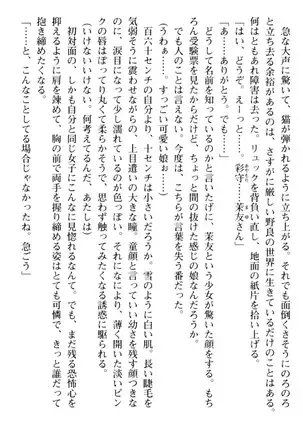 急な大声に驚いて、猫が弾かれるように立ち上がる。それでも面倒くさそうにのろのろ
と立ち去る余裕があるのは、さすがに厳しい野良の世界に生きているだけのことはある。
何はともあれ障害は去った。リュックを背負い直し、地面の紙片を拾い上げる。
「はい、どうぞ。えーっと……彩守……茉友さん」
「あ……ありがとう。でも……」
どうして名前を知っているのかと言いたげに、茉友という少女が驚いた顔をする。もち
ろん受験票を見たからだけど、ちょっと間の抜けた感じの娘なんだろうか。
でも人のことは言えない。今度は、こちらが言葉を失う番だった。
（うわぁ……。すっごい可愛い娘ぉ……）
百六十センチの自分より、十センチは小さいだろうか。雪のように白い肌。長い睫毛を
気弱そうに震わせながらの、上目遣いの大きな瞳。童顔っていい幼さを残す顔立ちな
のに、涙目になって少し濡れているのが色っぽい。それになにより、薄く開いた淡いピン
クの唇はぽってり丸くて柔らかそうで、思わず触ってみたくなる誘惑に駆られる。
（いけないいけない。何考えてるんだ、あたしは）
初対面の、しかも自分と同じ女子にこんなに見惚れるなんて。でも、まだ残る恐怖心を
抑えるように肩を竦めて、胸の前で両手を握り締める姿はとても可憐で、きっと誰だって
抱き締めたくなる。
「……と、こんなことしてる場合じゃなかったね。急ごう」